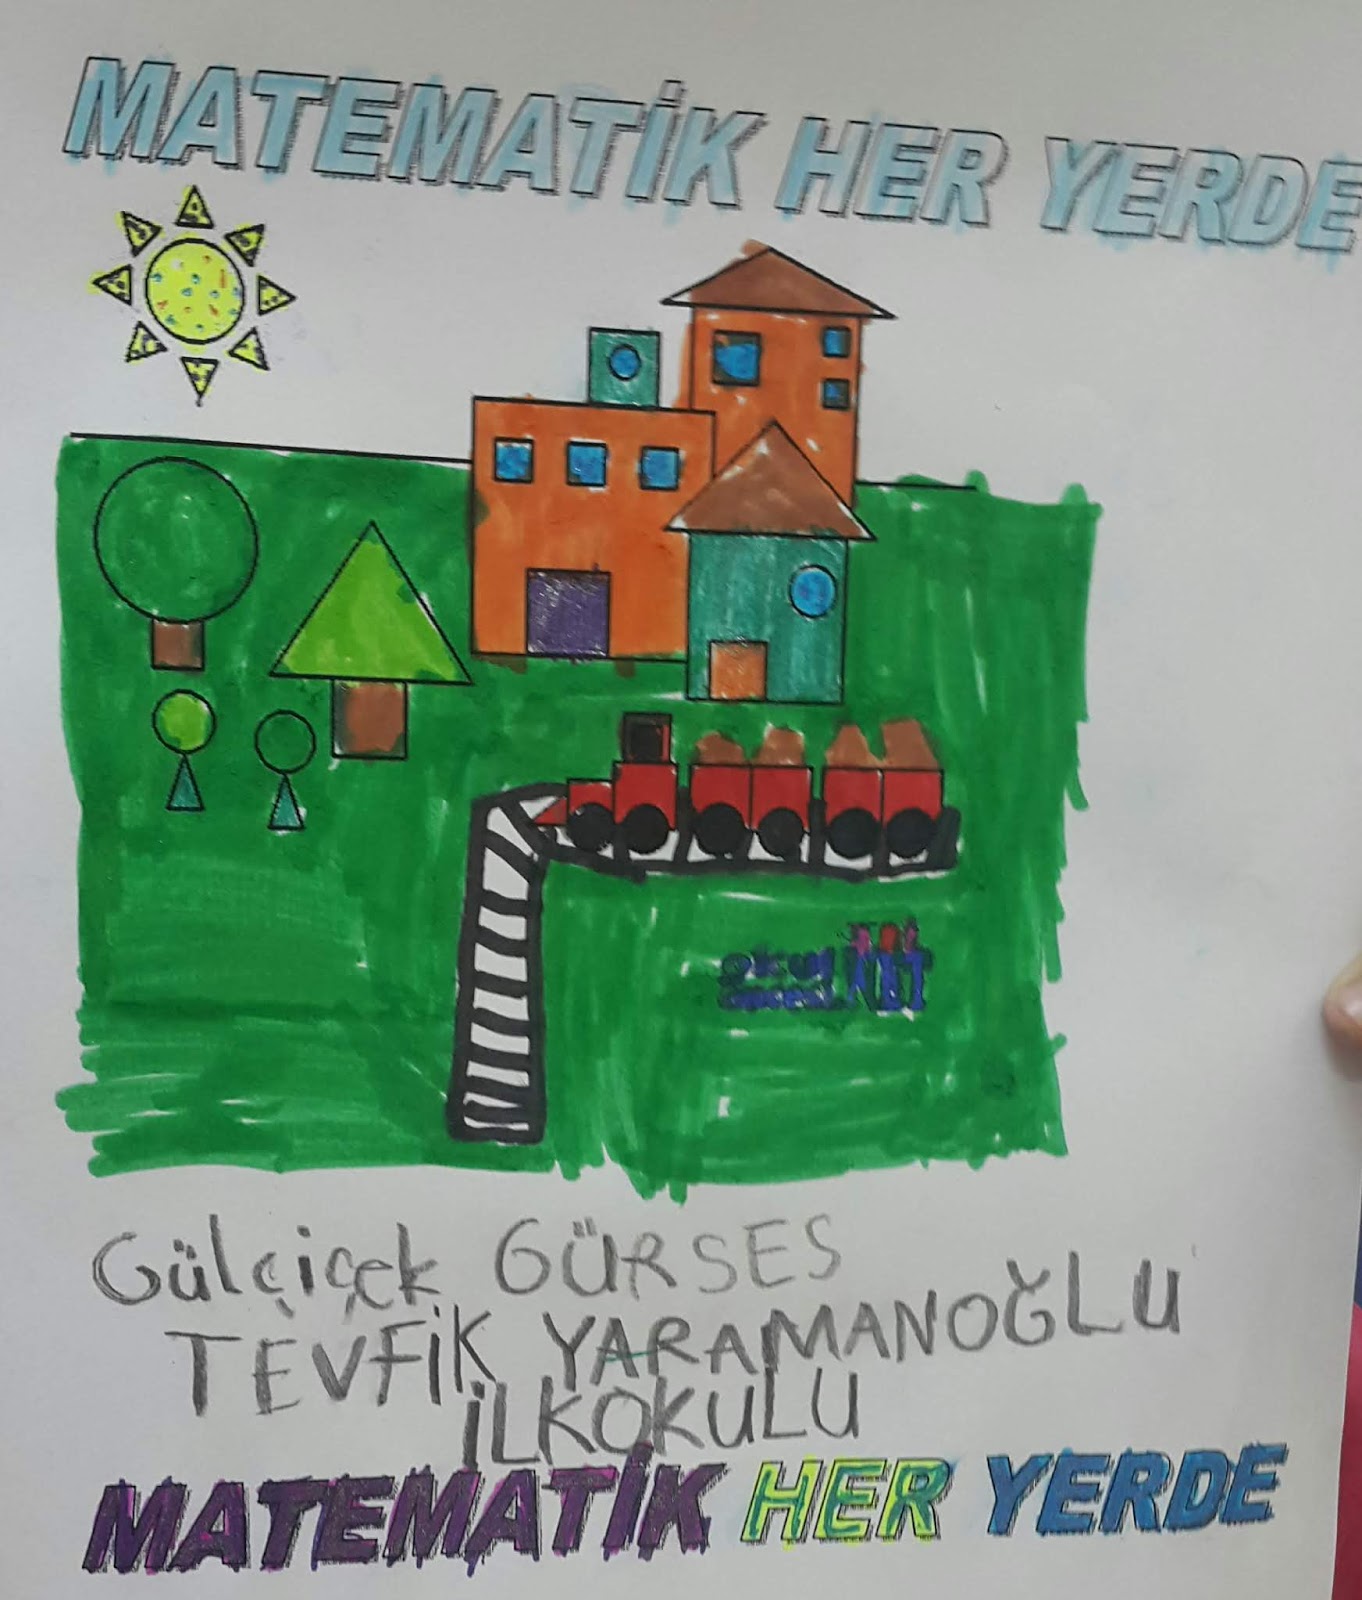 MATEMATİK HER YERDE
okul
öncesi NET
Gülçiçek GÜRSES
TEVFİK YARAMANOĞLU
İLKOKULU
MATEMATİK HER YERDE